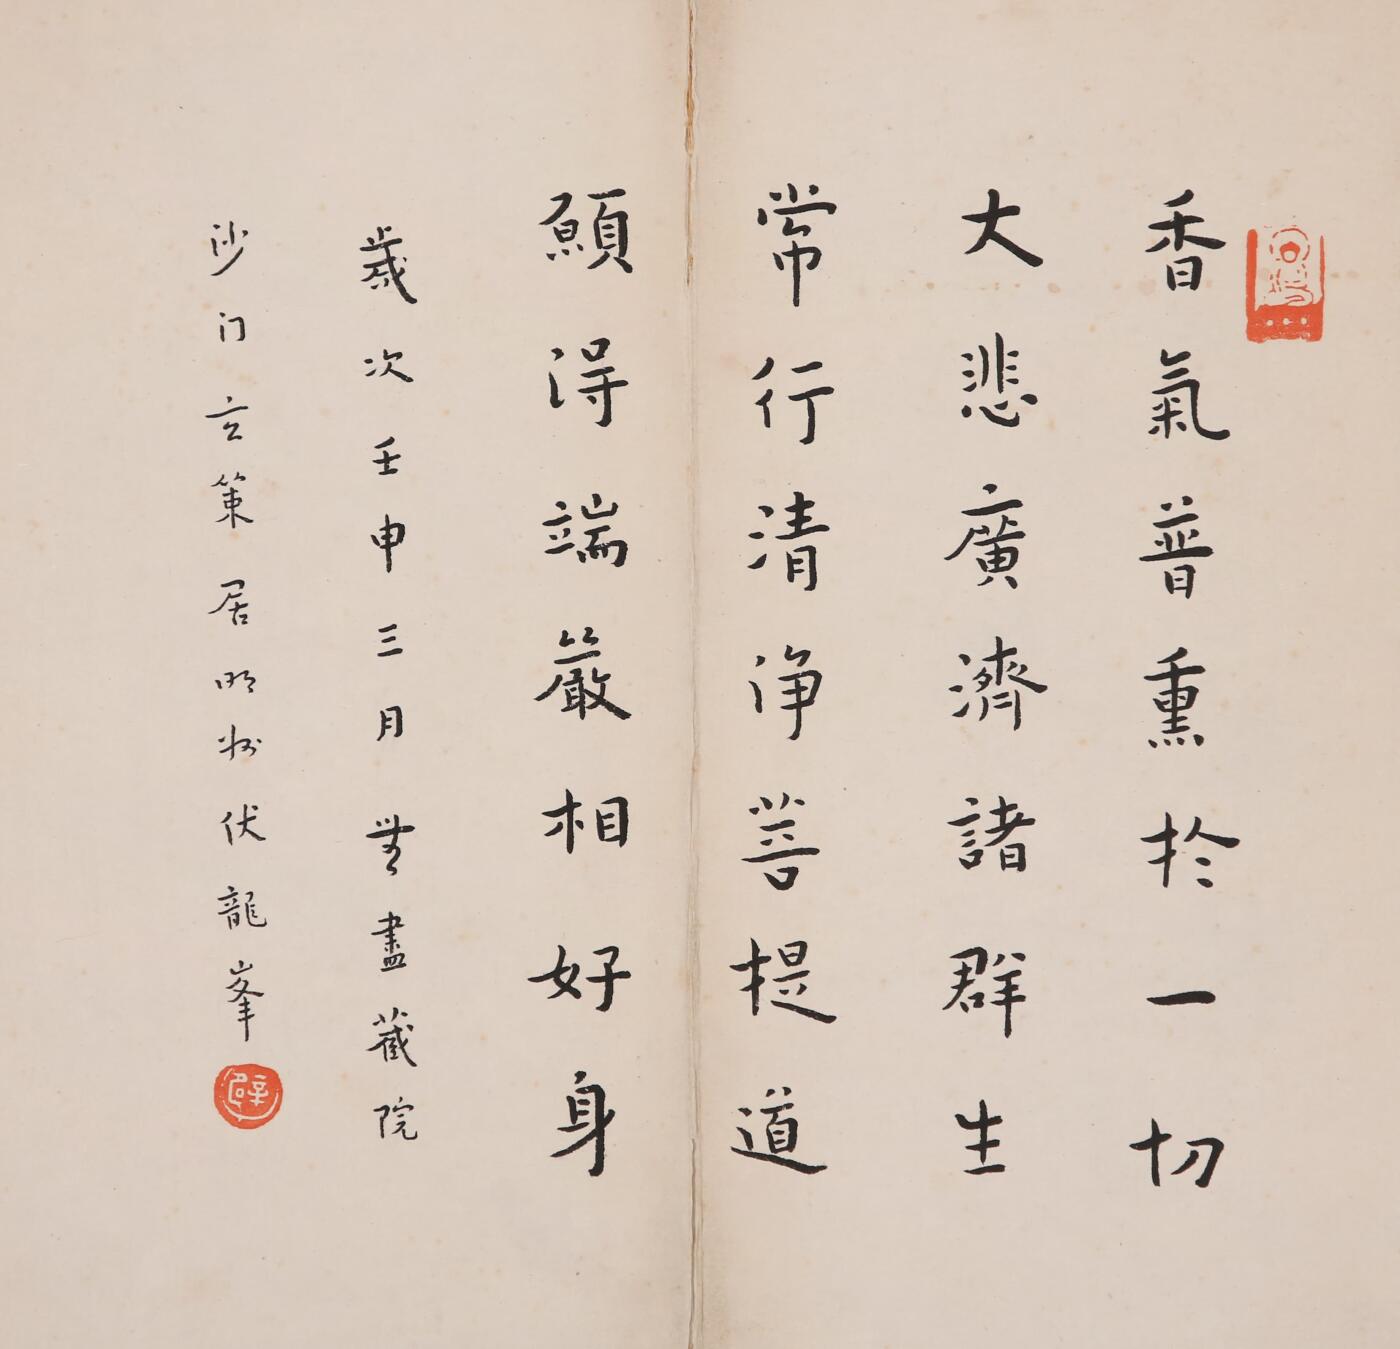 香氣普熏於一切
大悲廣濟諸群生
常行清淨菩提道
願得端嚴相好身
歲次壬申三月無盡藏院
沙门玄策居明州伏龍峯